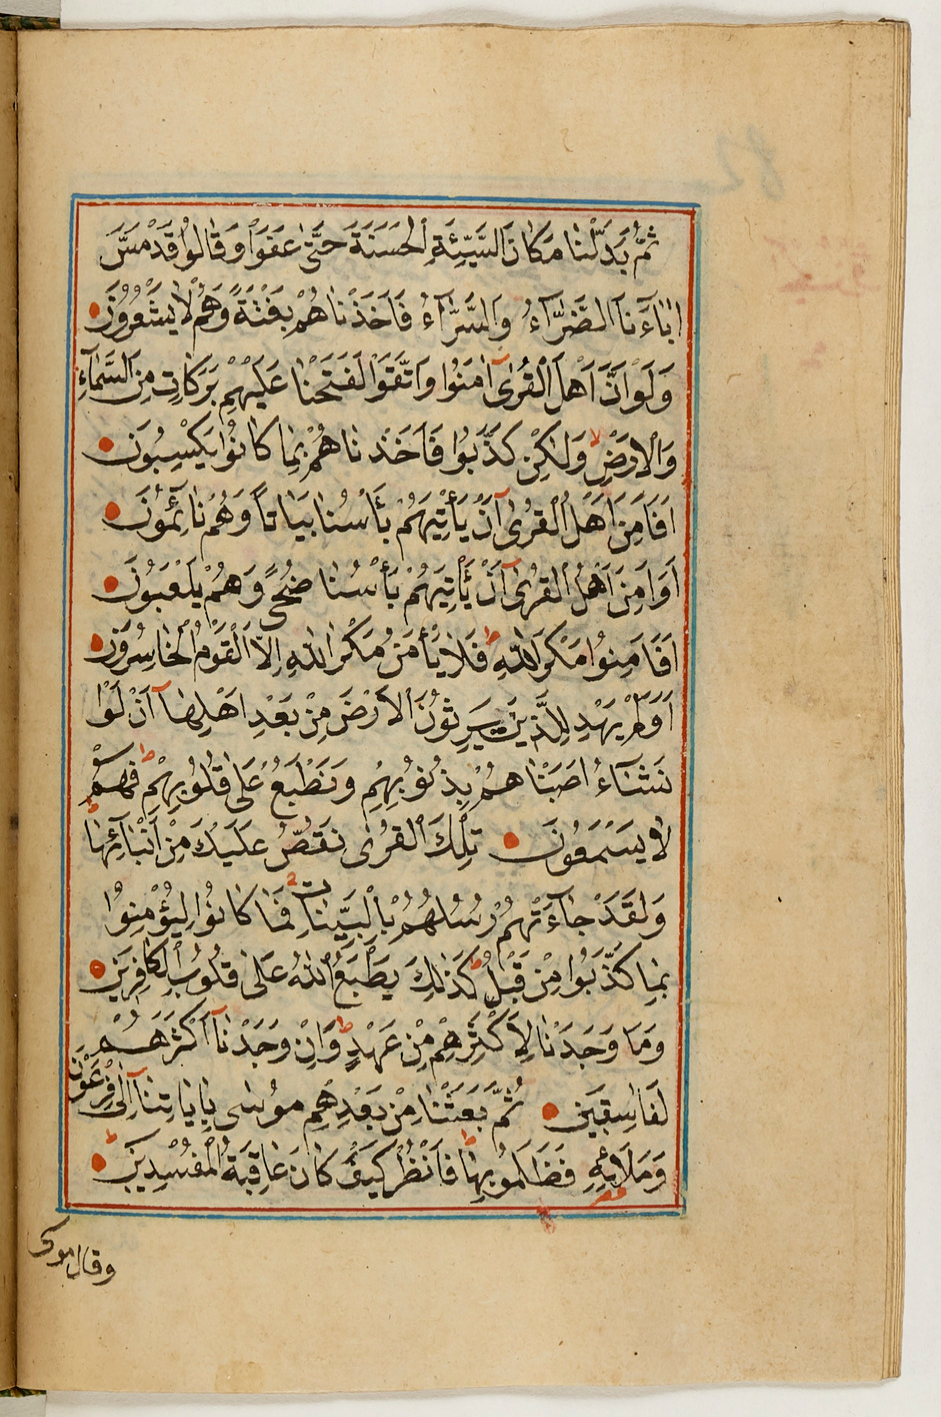 ثُمَّ بَدَّلْنَا مَكَانَ السَّيِّئَةِ الْحَسَنَةَ حَتّٰى عَفَوْا وَقَالُوا قَدْ مَسَّ
اٰبَاءَنَا الضَّرَّاءُ وَالسَّرَّاءُ فَاَخَذْنَاهُمْ بَغْتَةً وَهُمْ لَا يَشْعُرُونَ
وَلَوْ اَنَّ اَهْلَ الْقُرٰى اٰمَنُوا وَاتَّقَوْا لَفَتَحْنَا عَلَيْهِمْ بَرَكَاتٍ مِنَ السَّمَاءِ
وَالْاَرْضِ وَلٰكِنْ كَذَّبُوا فَاَخَذْنَاهُمْ بِمَا كَانُوا يَكْسِبُونَ
اَفَاَمِنَ اَهْلُ الْقُرٰى اَنْ يَأْتِيَهُمْ بَأْسُنَا بَيَاتًا وَهُمْ نَائِمُونَ
اَوَاَمِنَ اَهْلُ الْقُرٰى اَنْ يَأْتِيَهُمْ بَأْسُنَا ضُحًى وَهُمْ يَلْعَبُونَ
اَفَاَمِنُوا مَكْرَ اللّٰهِ ط فَلَا يَأْمَنُ مَكْرَ اللّٰهِ اِلَّا الْقَوْمُ الْخَاسِرُونَ
اَوَلَمْ يَهْدِ لِلَّذِينَ يَرِثُونَ الْاَرْضَ مِنْ بَعْدِ اَهْلِهَا اَنْ لَوْ
نَشَاءُ اَصَبْنَاهُمْ بِذُنُوبِهِمْ وَنَطْبَعُ عَلٰى قُلُوبِهِمْ ط فَهُمْ
لَا يَسْمَعُونَ تِلْكَ الْقُرٰى نَقُصُّ عَلَيْكَ مِنْ اَنْبَائِهَا ط
وَلَقَدْ جَاءَتْهُمْ رُسُلُهُمْ بِالْبَيِّنَاتِ فَمَا كَانُوا لِيُؤْمِنُوا
بِمَا كَذَّبُوا مِنْ قَبْلُ ط كَذٰلِكَ يَطْبَعُ اللّٰهُ عَلٰى قُلُوبِ الْكَافِرِينَ
وَمَا وَجَدْنَا لِاَكْثَرِهِمْ مِنْ عَهْدٍ ط وَاِنْ وَجَدْنَا اَكْثَرَهُمْ
لَفَاسِقِينَ ثُمَّ بَعَثْنَا مِنْ بَعْدِهِمْ مُوسٰى بِاٰيَاتِنَا اِلٰى فِرْعَوْنَ
وَمَلَائِهِ فَظَلَمُوا بِهَا ط فَانْظُرْ كَيْفَ كَانَ عَاقِبَةُ الْمُفْسِدِينَ
وقال موسى